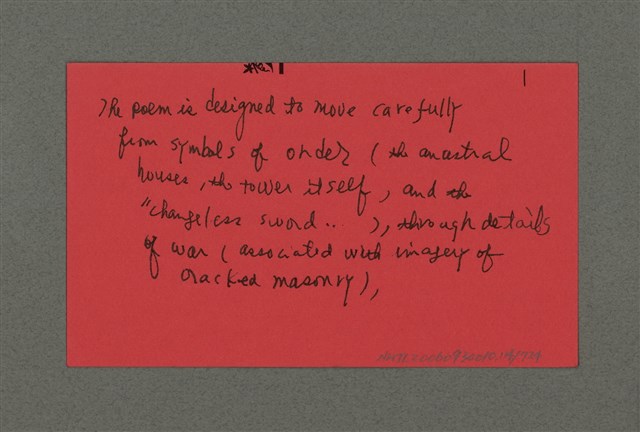 The poem is designed to move carefully
from symbols of order (the ancestral
houses, the tower itself, and the
"changeless sword..."), through details
of war (associated with imagery of
cracked masonry),